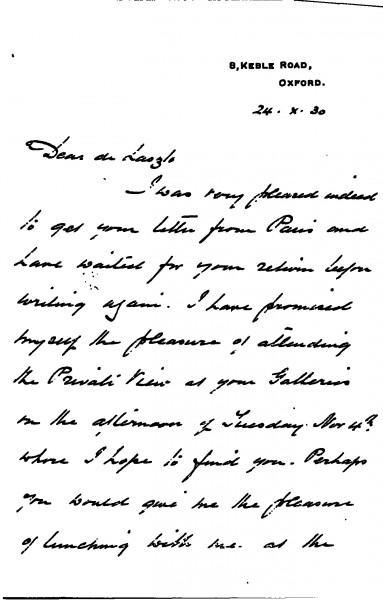 8, KEBLE ROAD,
OXFORD.
24. x. 30
Dear de Laszlo
I was very pleased indeed
to get your letter from Paris and
have waited for your return before
writing again. I have promised
myself the pleasure of attending
the Private View at your Galleries
on the afternoon of Tuesday. Nov 4th.
where I hope to find you. Perhaps
you would give me the pleasure
of lunching with me. at the